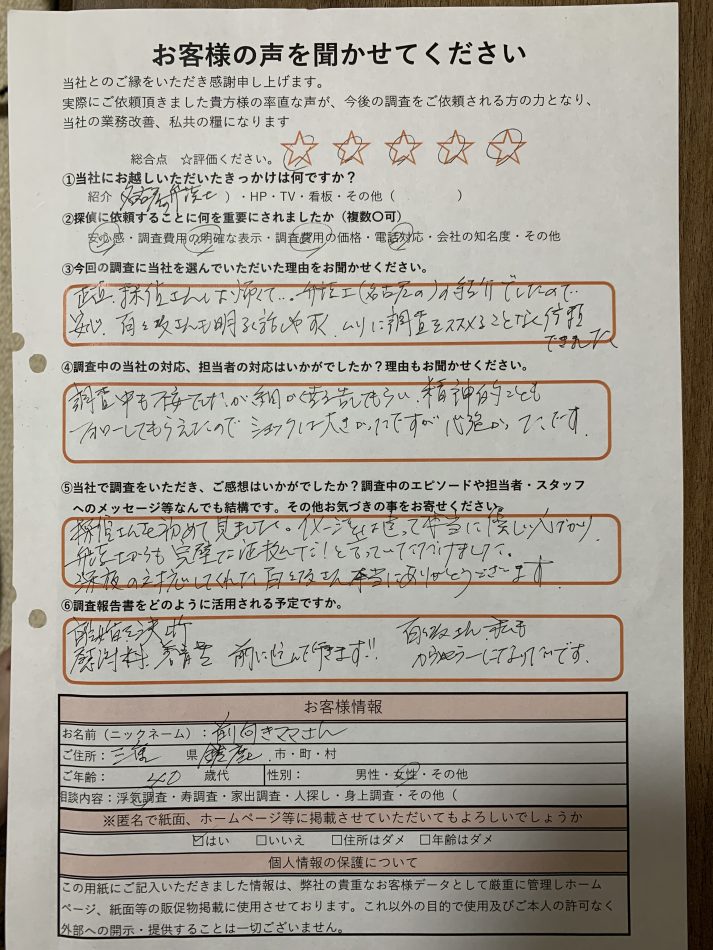 お客様の声を聞かせてください
当社とのご縁をいただき感謝申し上げます。
実際にご依頼頂きました貴方様の率直な声が、今後の調査をご依頼される方の力となり、
当社の業務改善、私共の糧になります
総合点 ☆評価ください。
①当社にお越しいただいたきっかけは何ですか?
紹介 名古屋弁護士 )・HP・TV・看板・その他( )
②探偵に依頼することに何を重要にされましたか(複数〇可)
安心感・調査費用の明確な表示・調査費用の価格・電話対応・会社の知名度・その他
③今回の調査に当社を選んでいただいた理由をお聞かせください。
正直、探偵さんしな怖くて… 弁護士(名古屋の)の紹介でしたので
安心。百々改さんも明るく話しやすく、ムリに調査をススめることなく依頼
できました
④調査中の当社の対応、担当者の対応はいかがでしたか?理由もお聞かせください。
調査中も不安でしたが細かく報告してもらい、精神的なことも
フォローしてもらえたのでショックは大きかったですが心強かったです。
⑤当社で調査をいただき、ご感想はいかがでしたか?調査中のエピソードや担当者・スタッフ
へのメッセージ等なんでも結構です。その他お気づきの事をお寄せください
探偵さんを初めて見ました。イメージとは違って本当に優しい人ばかり
弁護士からも完璧な証拠んだ!と言っていただけました。
深夜の対応してくれた百々改さん本当にありがとうございます
⑥調査報告書をどのように活用される予定ですか。
離婚を決断
慰謝料、養育費 前に進んで行きます!! 百々改さん、また
カウンセラーしてもらいたいです。
お客様情報
お名前(ニックネーム):前向きママさん
ご住所:三重 県 鈴鹿 市・町・村
ご年齢: 40 歳代 性別: 男性・女性・その他
相談内容:浮気調査・寿調査・家出調査・人探し・身上調査・その他(
※匿名で紙面、ホームページ等に掲載させていただいてもよろしいでしょうか
☑はい □いいえ □住所はダメ □年齢はダメ
個人情報の保護について
この用紙にご記入いただきました情報は、弊社の貴重なお客様データとして厳重に管理しホーム
ページ、紙面等の販促物掲載に使用させております。これ以外の目的で使用及びご本人の許可なく
外部への開示・提供することは一切ございません。